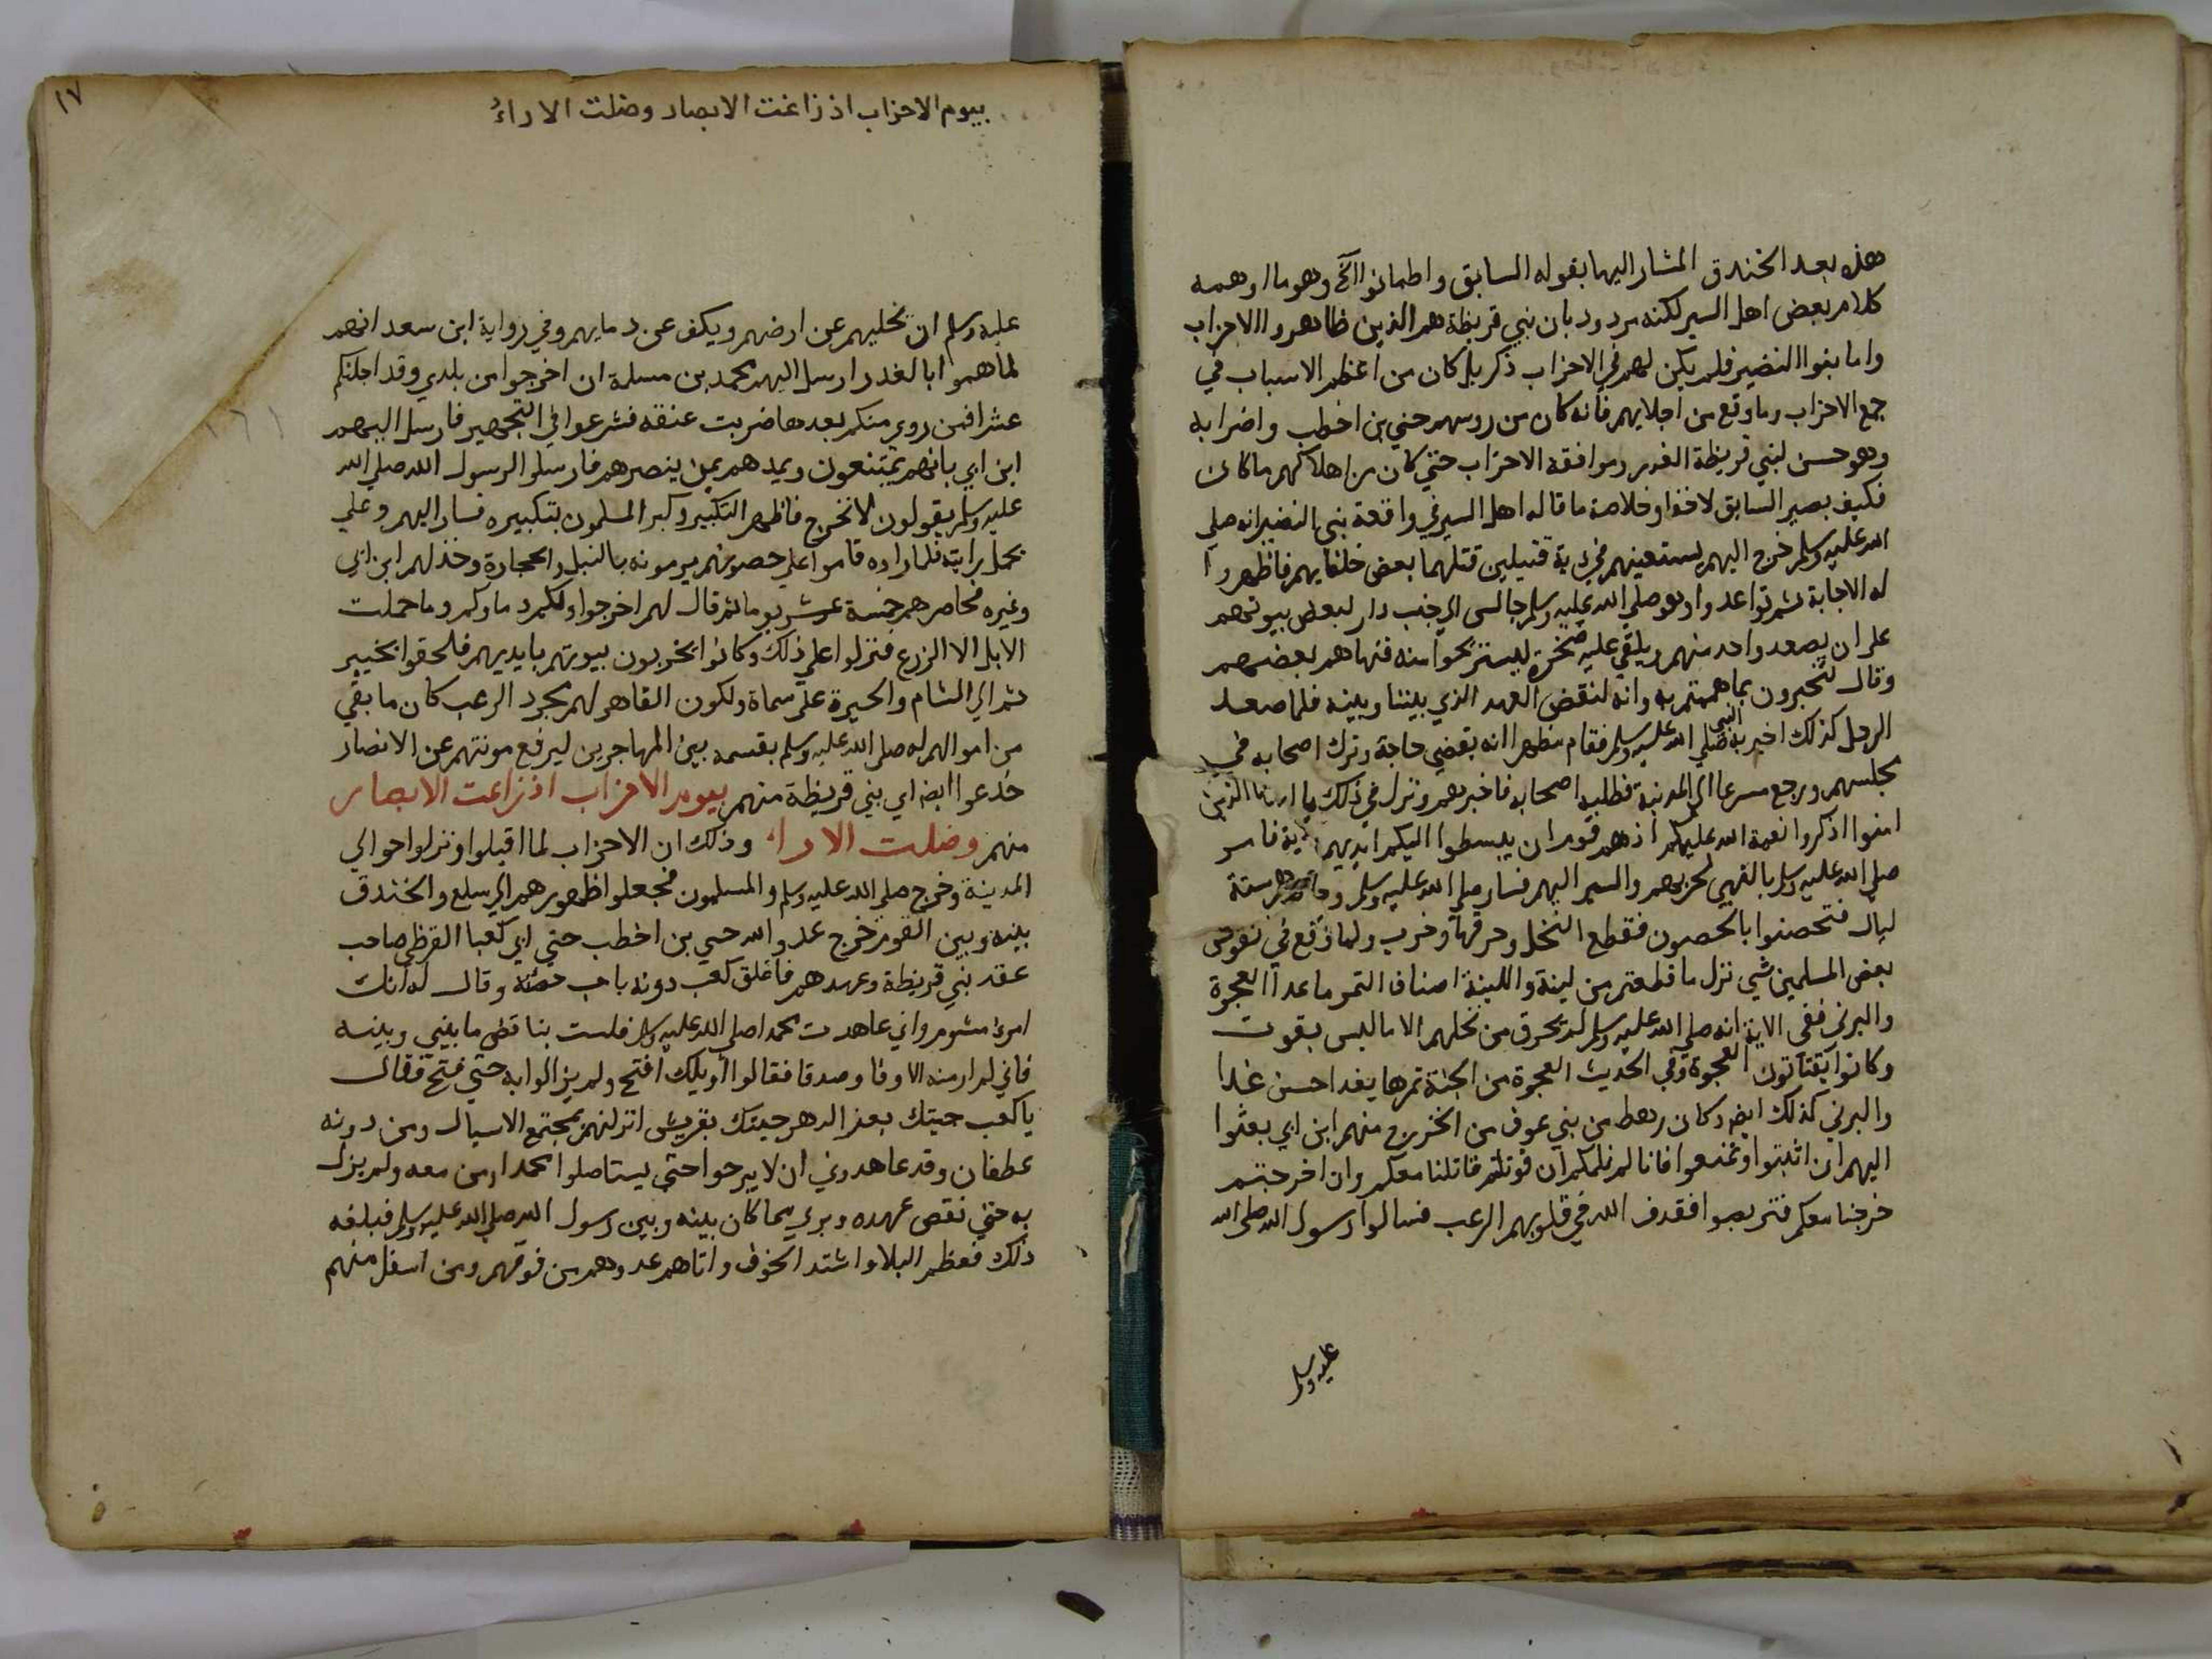 هذه بعد الخندق المشار اليها بقوله السابق واطمانوا الخ وهو ما اوهمه
كلام بعض اهل السير لكنه مردود بان بني قريظة هم الذين ظاهروا الاحزاب
واما بنوا النضير فلم يكن لهم في الاحزاب ذكر بل كان من اعظم الاسباب في
جمع الاحزاب وما وقع من اجلايهم فانه كان من روسهم حيي بن اخطب واضرابه
وهو حسن لبني قريظة الغدر وموافقة الاحزاب حتي كان من اهلاكهم ما كان
فكيف يصير السابق لاحقا وخلاصة ما قاله اهل السير في واقعة بني النضير انه صلي
الله عليه وسلم خرج اليهم يستعينهم في دية قتيلين قتلهما بعض خلفايهم فاظهروا
له الاجابة ثم تواعدوا وهو صلي الله عليه وسلم جالس الي جنب دار لبعض بيوتهم
علي ان يصعد واحد منهم ويلقي عليه صخرة ليستريحوا منه فنهاهم بعضهم
وقال لتخبرون بما هممتم به وانه لنقض العهد الذي بيننا وبينه فلما صعد
الرجل كذلك اخبر به النبي صلي الله عليه وسلم فقام مظهرا انه يقضي حاجة وترك اصحابه في
مجلسهم ورجع مسرعا الي المدينة فطلبه اصحابه فاخبرهم ونزل في ذلك يا ايها الذين
امنوا اذكروا نعمة الله عليكم اذ هم قوم ان يبسطوا اليكم ايديهم الاية فامر
صلي الله عليه وسلم بالتهيي لحربهم والسير اليهم فسار صلي الله عليه وسلم وحاصرهم ستة
ليال فتحصنوا بالحصون فقطع النخل وحرقها وخرب ولما وقع في نفوس
بعض المسلمين شي نزل ما قطعتم من لينة واللينة اصناف التمر ما عدا العجوة
والبرني ففي الاية انه صلي الله عليه وسلم لم يحرق من نخلهم الا ما ليس بقوت
وكانوا يقتاتون العجوة وفي الحديث العجوة من الجنة تمرها يغذا احسن غذا
والبرني كذلك ايضا وكان رهط من بني عوف من الخزرج منهم ابن ابي بعثوا
اليهم ان اثبتوا وتمنعوا فانا لم نلمكم ان قوتلتم قاتلنا معكم وان اخرجتم
خرجنا معكم فتربصوا فقذف الله في قلوبهم الرعب فسالوا رسول الله صلي الله
عليه وسلم
١٧
بيوم الاحزاب اذ زاغت الابصار وضلت الاراءُ
عليه وسلم ان يخليهم عن ارضهم ويكف عن دمايهم وفي رواية ابن سعد انهم
لما هموا بالغدر ارسل اليهم محمد بن مسلمة ان اخرجوا من بلدي وقد اجلتكم
عشرا فمن روي منكم بعدها ضربت عنقه فشرعوا في التجهيز فارسل اليهم
ابن ابي بانهم يمتنعون ويمدهم بمن ينصرهم فارسلوا لرسول الله صلي الله
عليه وسلم يقولون لا نخرج فاظهر التكبير وكبر المسلمون بتكبيره فسار اليهم وعلي
يحمل رايته فلما راوه قاموا علي حصونهم يرمونه بالنبل والحجارة وخذلهم ابن ابي
وغيره فحاصرهم خمسة عشر يوما ثم قال لهم اخرجوا ولكم دماوكم وما حملت
الابل الا الزرع فنزلوا علي ذلك وكانوا يخربون بيوتهم بايديهم فلحقوا بخيبر
ثم الي الشام والحيرة علي سماة ولكون القاهر لهم مجرد الرعب كان ما بقي
من اموالهم له صلي الله عليه وسلم يقسمه بين المهاجرين ليرفع مونتهم عن الانصار
خدعوا ايضا اي بني قريظة منهم بيوم الاحزاب اذ زاغت الابصار
منهم وضلت الاراء وذلك ان الاحزاب لما اقبلوا ونزلوا حوالي
المدينة وخرج صلي الله عليه وسلم والمسلمون فجعلوا ظهورهم الي سلع والخندق
بينه وبين القوم خرج عدو الله حيي بن اخطب حتي اتي كعبا القرظي صاحب
عقد بني قريظة وعهدهم فاغلق كعب دونه باب حصنه وقال له انك
امرئ مشوم واني عاهدت محمدا صلي الله عليه وسلم فلست بناقض ما بيني وبينه
فاني لم ار منه الا وفا وصدقا فقالوا ويلك افتح ولم يزالوا به حتي فتح فقال
يا كعب جيتك بعز الدهر جيتك بقريش انزلتهم بمجتمع الاسيال ومن دونه
غطفان وقد عاهدوني ان لا يبرحوا حتي يستاصلوا محمدا ومن معه ولم يزل
به حتي نقض عهده وبري مما كان بينه وبين رسول الله صلي الله عليه وسلم فبلغه
ذلك فعظم البلا واشتد الخوف واتاهم عدوهم من فوقهم ومن اسفل منهم